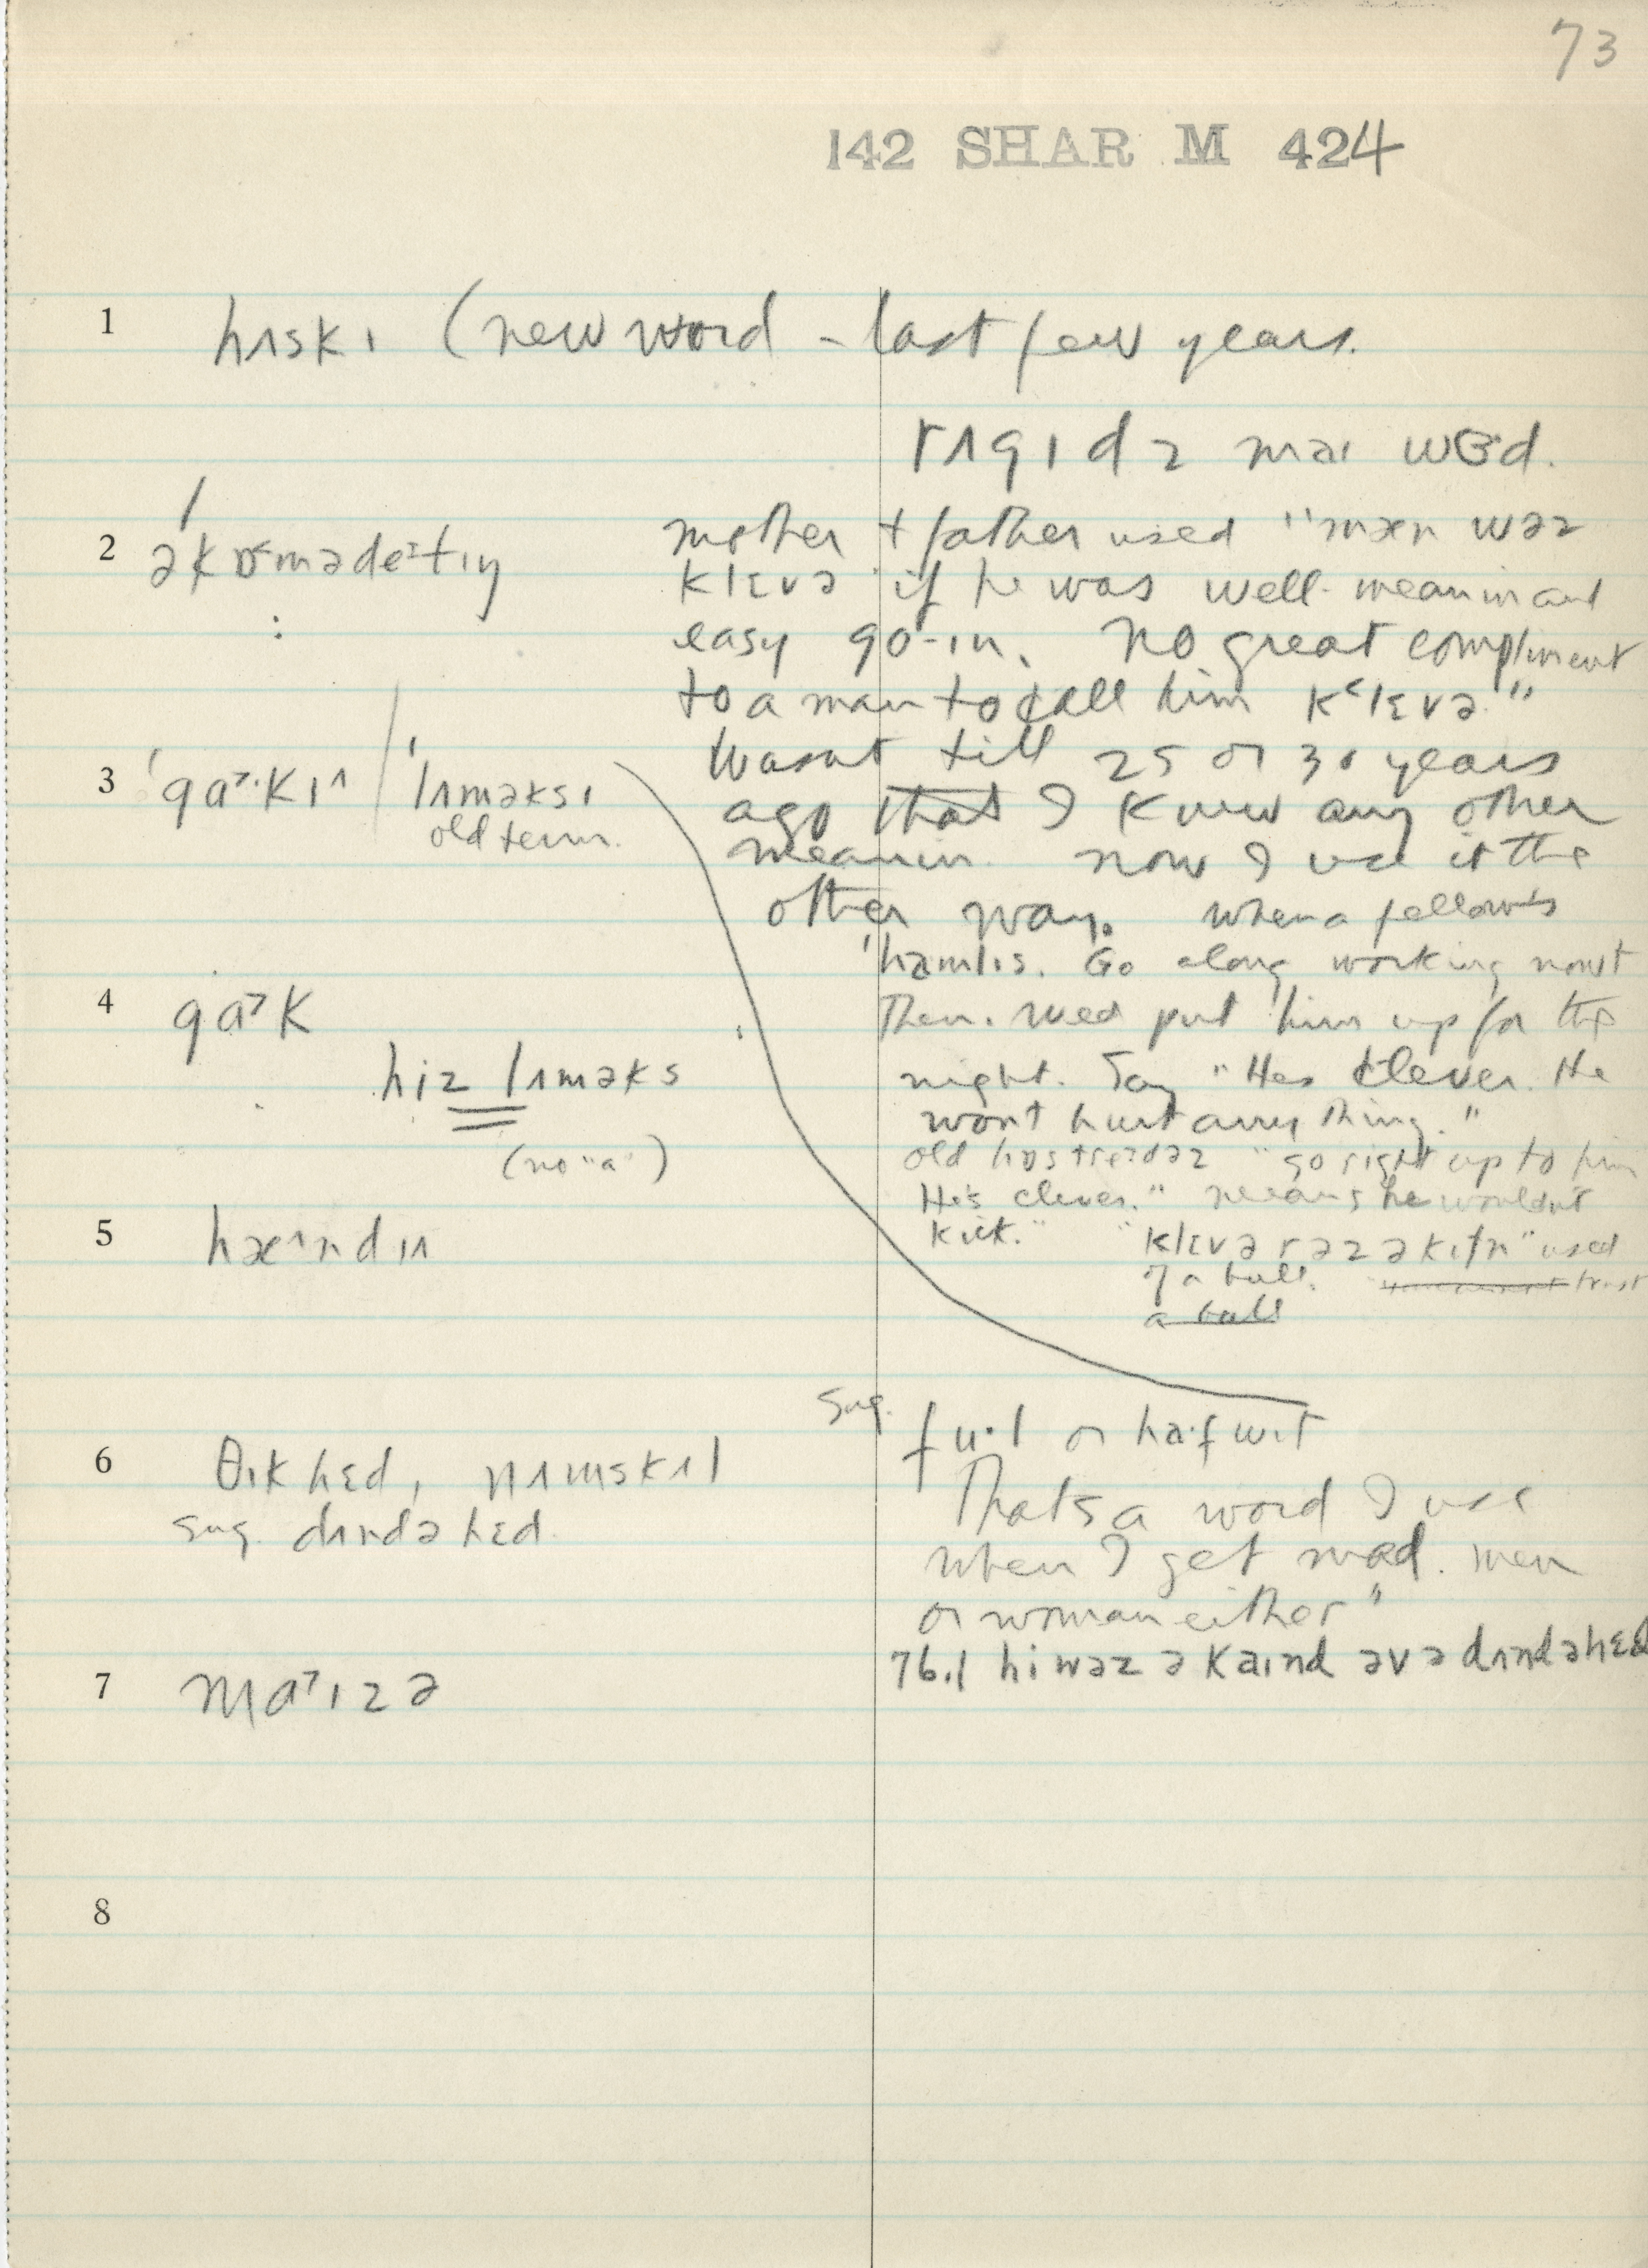 73
142 SHAR M 424
1 hʌskɪ (new word - last few years.
rʌgɪdz maɪ wɜd.
2 əkɒmədeɪtɪŋ
mother + father used "mæn wəz
klɛvə if he was well-meanin and
easy go-in. No great compliment
to a man to call him kʻlɛvə."
3 ˈga˃·kɪʌ / ˈlʌməksɪ
old term.
Wasnt till 25 or 30 years
ago that I knew any other
meanin. now I use it the
other way. When a fellow's
ˈhamlɪs. Go along working
4 ga˃k
Then. Wed put him up for the
hiz lʌməks
(no "a")
night. Say "Hes clever. He
wont hurt anything."
old "go right up to him
He's clever." means he wouldnt
kick."
5 hæ^ndɪʌ
"klɛvə rəz ə kɪtn" used
of a bull. trust
a bull
sug. fu·l or ha·fwɪt
6 θɪkhɛd, nʌmskʌl
sug. dʌndəhɛd.
Thats a word I use
when I get mad. men
or woman either"
76.1 hi wəz ə kaɪnd əv ə dʌndəhɛd
7 ma˃ɪzə
8